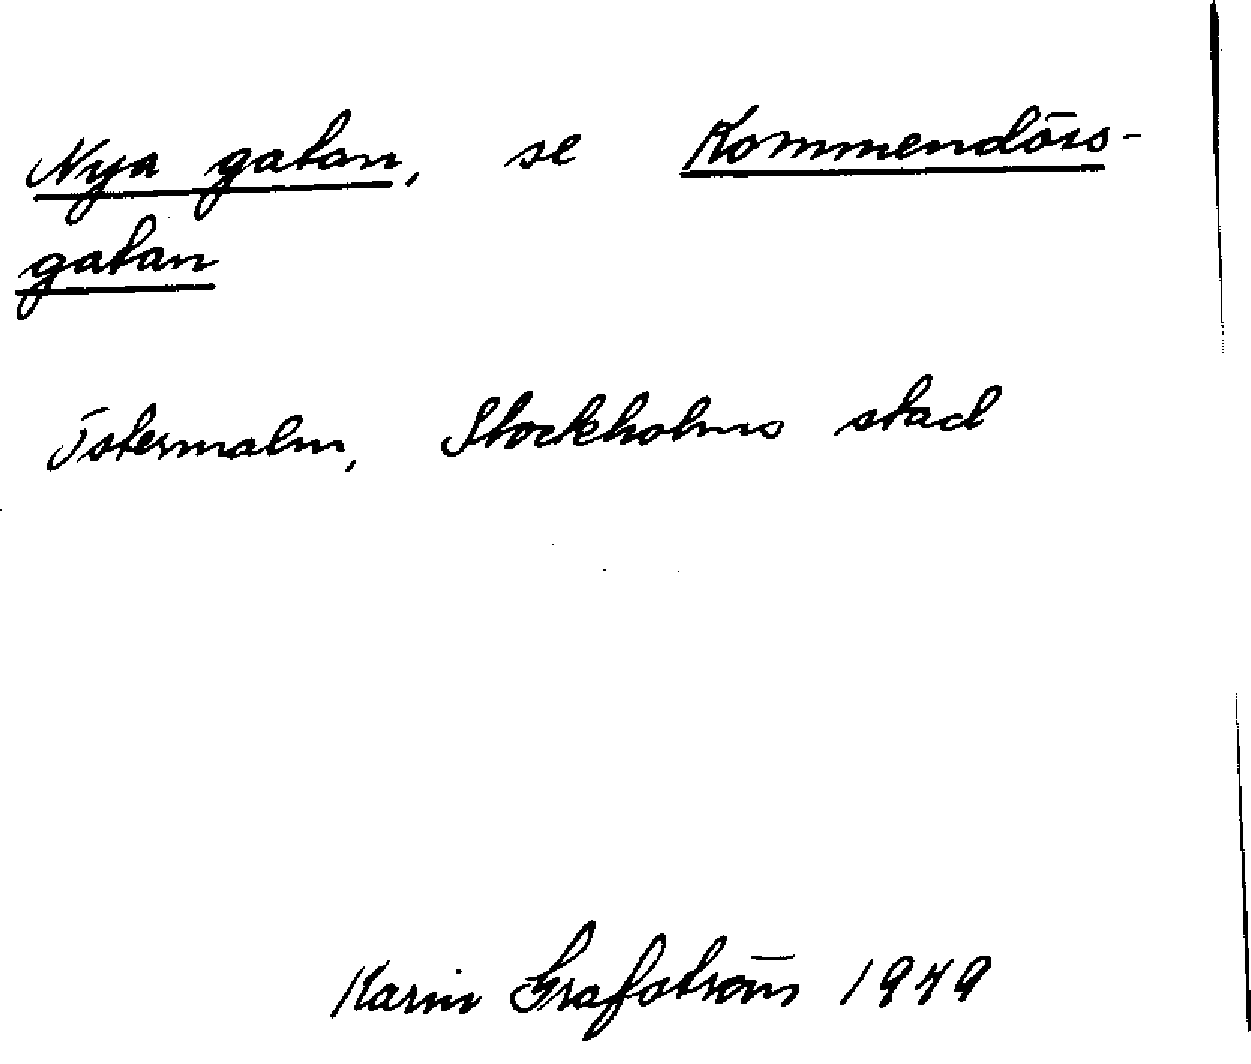 Nya gatan, se Kommendörs-
gatan
Östermalm, Stockholms stad
Karin Grafström 1949